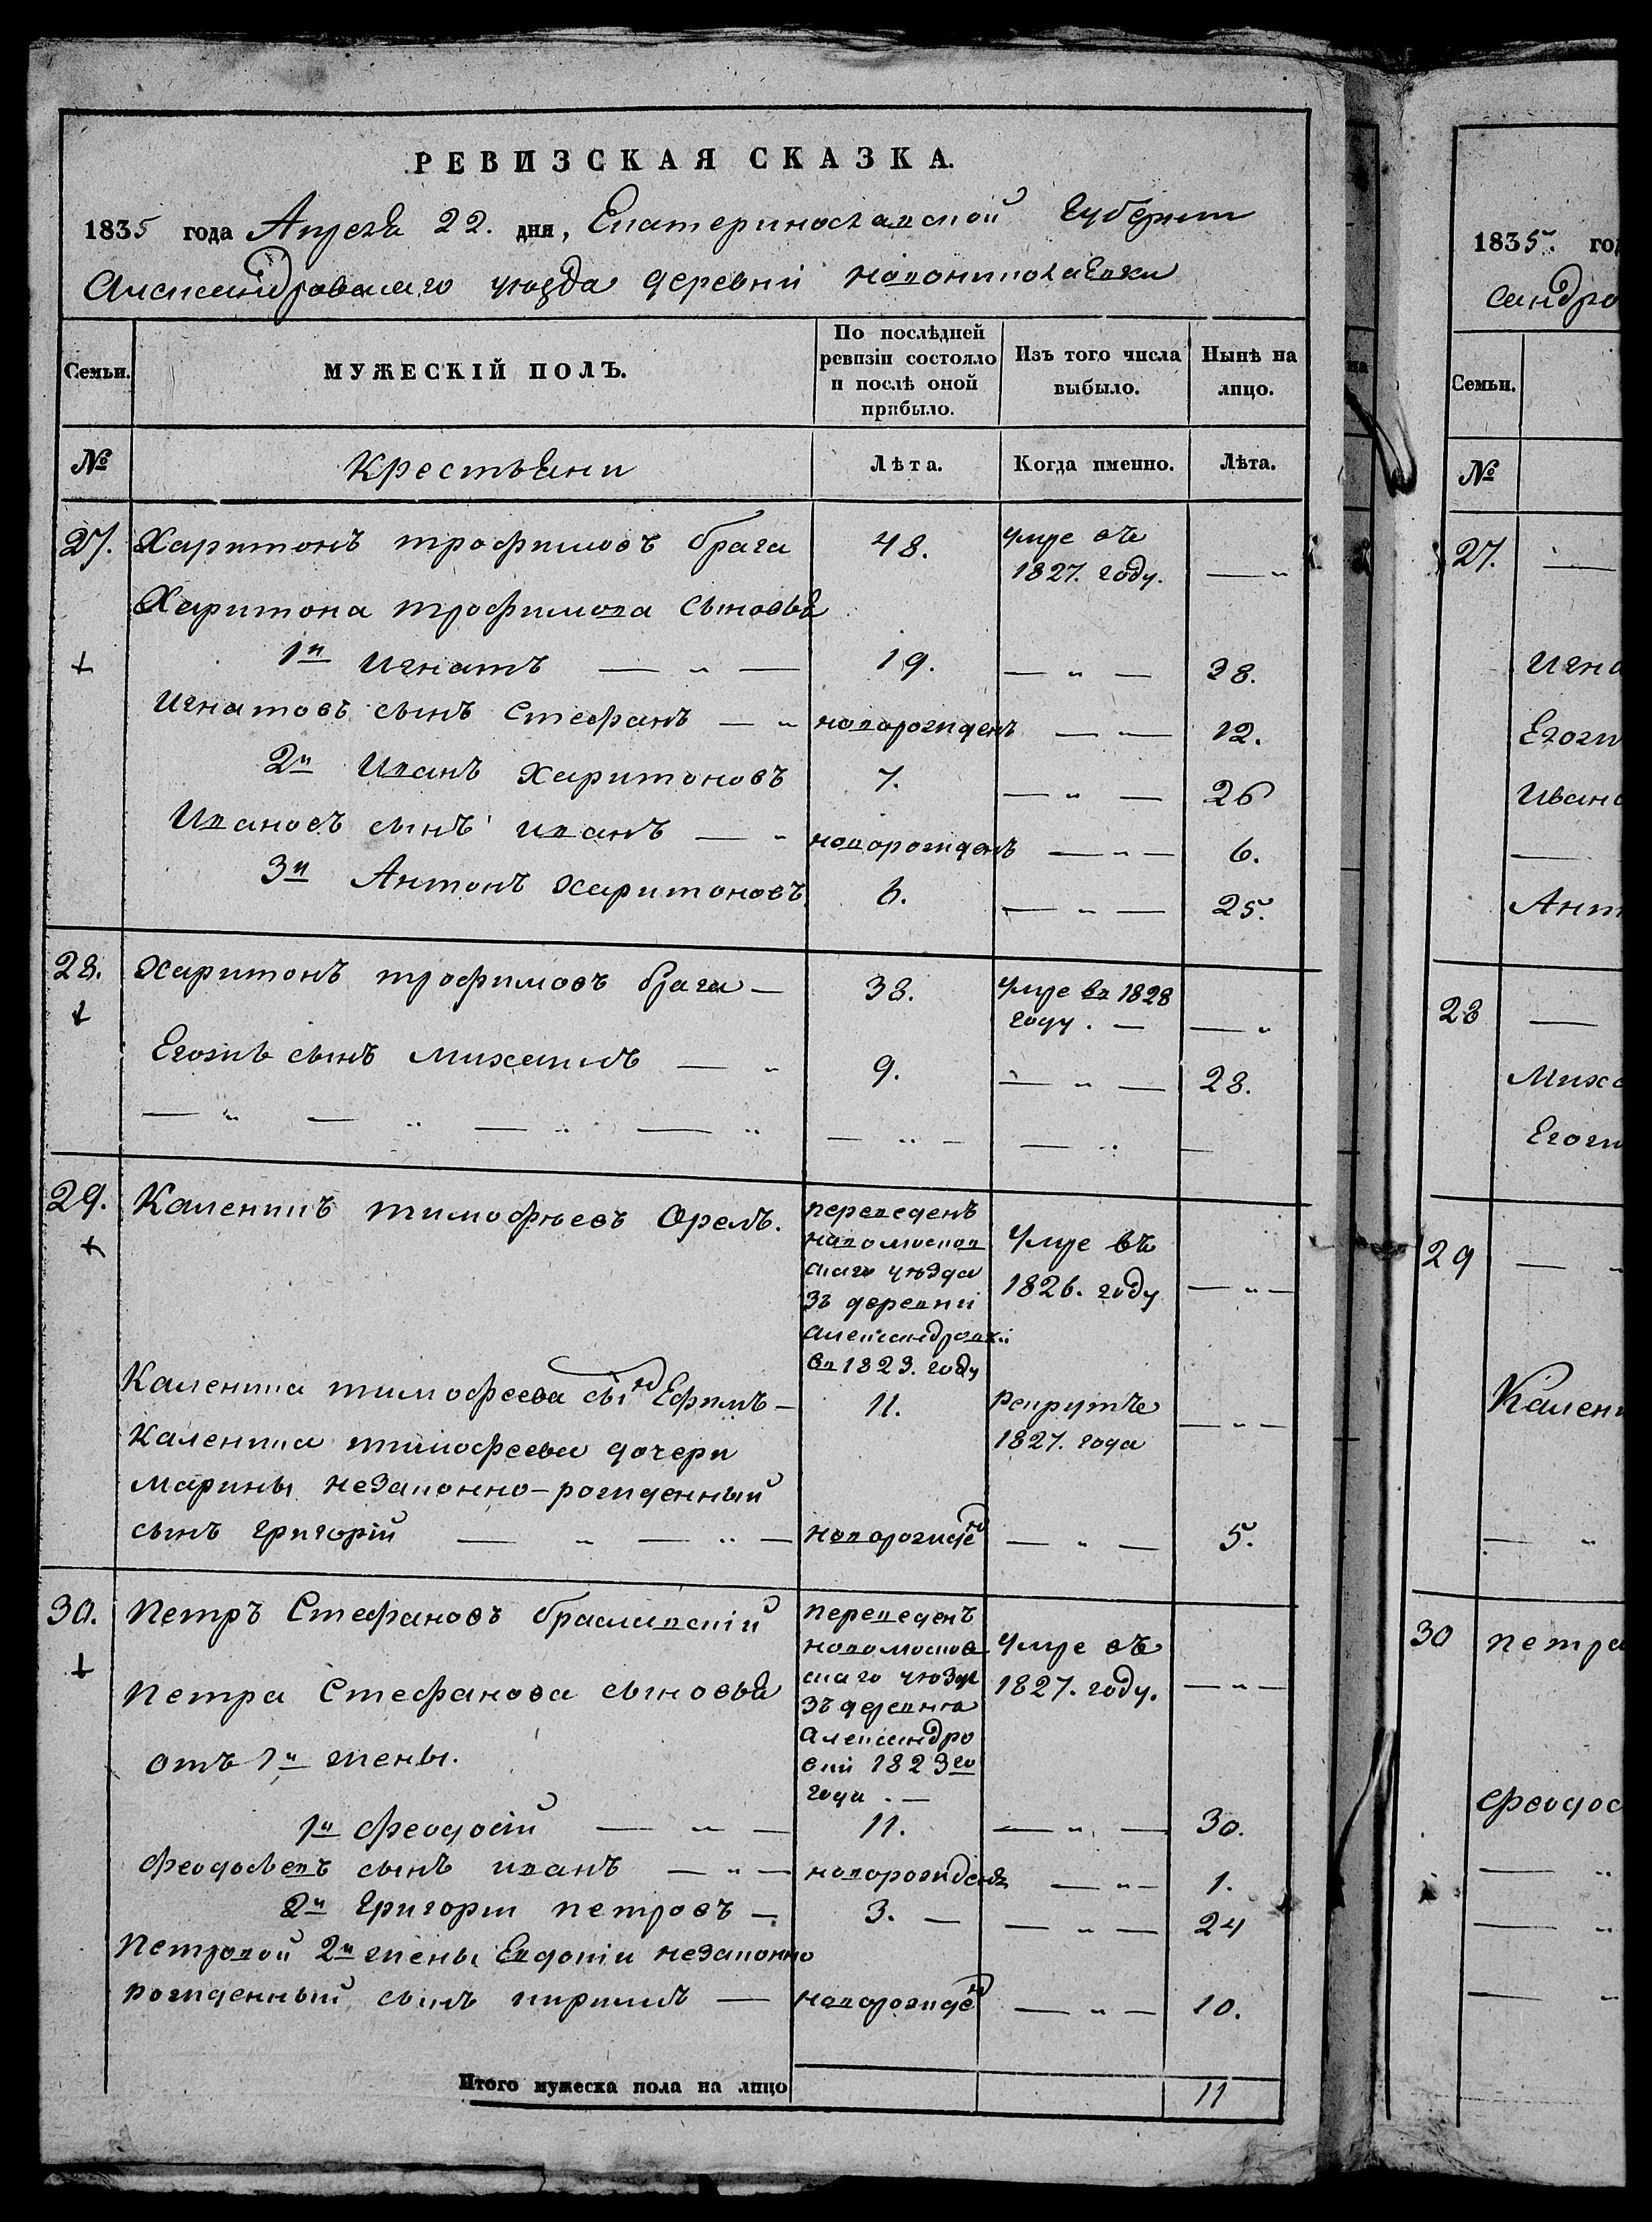 РЕВИЗСКАЯ СКАЗКА.
1835 года Апреля 22. дня, Екатеринославской Губернии
Александровскаго уезда деревни Новониколаевки
Семьи. МУЖЕСКІЙ ПОЛЪ. По послѣдней ревизіи состояло и послѣ оной прибыло. Изъ того числа выбыло. Нынѣ на лицо.
№ Крестьяни Лѣта. Когда именно. Лѣта.
27. Харитонъ трофимовъ брага 48. умре въ 1827. году. — "
Харитона трофимова сыновья
1й Игнатъ — " — 19. — " — 28.
Игнатовъ сынъ Стефанъ — " новорожденъ — " — 12.
2й Иванъ Харитоновъ 7. — " — 26
Ивановъ сынъ иванъ — " новорожденъ — " — 6.
3й Антонъ харитоновъ 6. — " — 25.
28. Харитонъ трофимовъ брага — 38. умре въ 1828 году. — — "
Егожъ сынъ михаилъ — " 9. — " — 28.
— " — " — " — " — " — — " —
29. Каленикъ тимофѣевъ Орелъ. переведенъ новомосков
скаго уѣзда
зъ деревни
александровки
въ 1823. году
умре въ
1826. году — " —
Каленика тимофеева сынъ Ефимъ — 11. рекрутъ 1827. года — " —
Каленика тимофеева дочери
марины незаконно-рожденный
сынъ григорій — " — " — новорожденъ — " — 5.
30. Петръ Стефановъ браславскій переведенъ
новомосков
скаго уюзда
зъ деревни
Александро
вки 1823го
года. —
умре въ
1827. году. — " —
Петра Стефанова сыновья
отъ 1й жены.
1й феодосій — " — 11. — " — 30.
феодосьевъ сынъ иванъ — " — новорожденъ — " — 1.
2й Григорій петровъ — 3. — — " — 24
Петровой 2й жены Евдокіи незаконно
рожденный сынъ кирилъ — новорожденъ — " — 10.
Итого мужеска пола на лицо 11
1835. го
сандро
Семьи.
№
27. —
Игна
Егожи
Ивано
—
Ант
28 —
Миха
Егожи
29 — "
Калени
— "
30 петра
феодос
— "
— "
— "